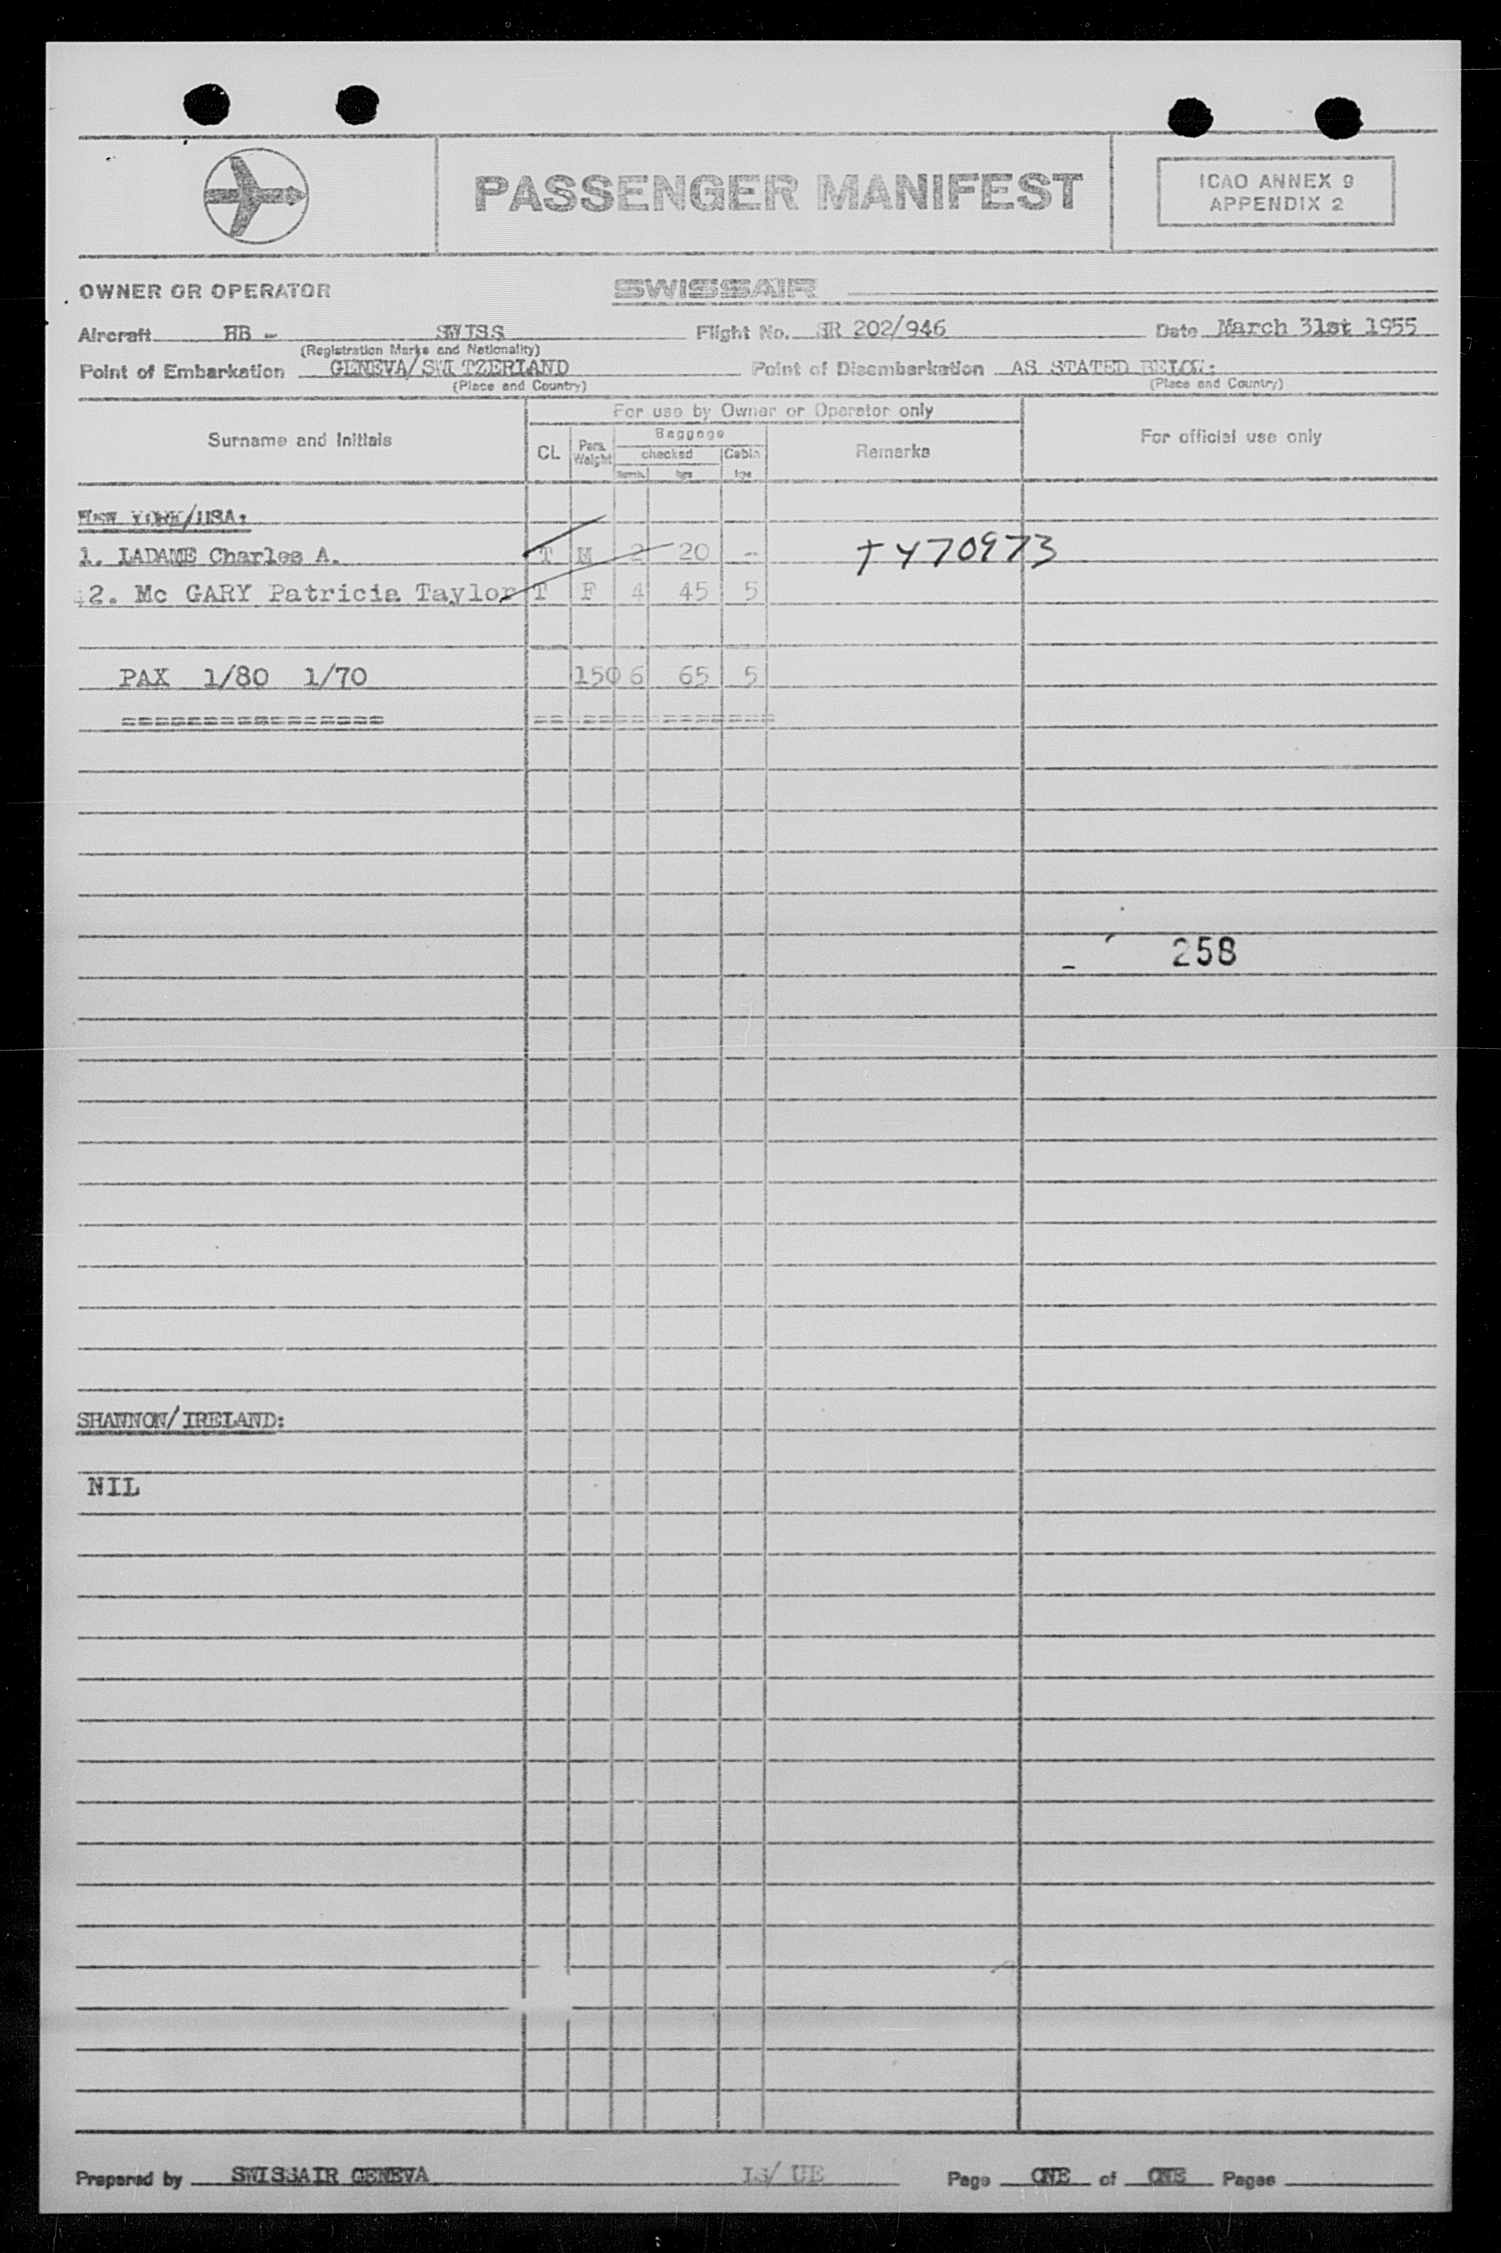 PASSENGER MANIFEST
ICAO ANNEX 9
APPENDIX 2
OWNER OR OPERATOR SWISSAIR
Aircraft HB - SWISS Flight No. SR 202/946 Date March 31st 1955
(Registration Marks and Nationality)
Point of Embarkation GENEVA/SWITZERLAND Point of Disembarkation AS STATED BELOW:
(Place and Country) (Place and Country)
For use by Owner or Operator only
Surname and Initials CL Pers. Weight Baggage checked Cabin Remarks For official use only
Numb. kgs kgs
New YORK/USA:
1. LADAME Charles A. T M 2 20 - + Y70973
2. Mc GARY Patricia Taylor T F 4 45 5
PAX 1/80 1/70 150 6 65 5
================ == =============
258
SHANNON/IRELAND:
NIL
Prepared by SWISSAIR GENEVA IS/ UE Page ONE of ONE Pages